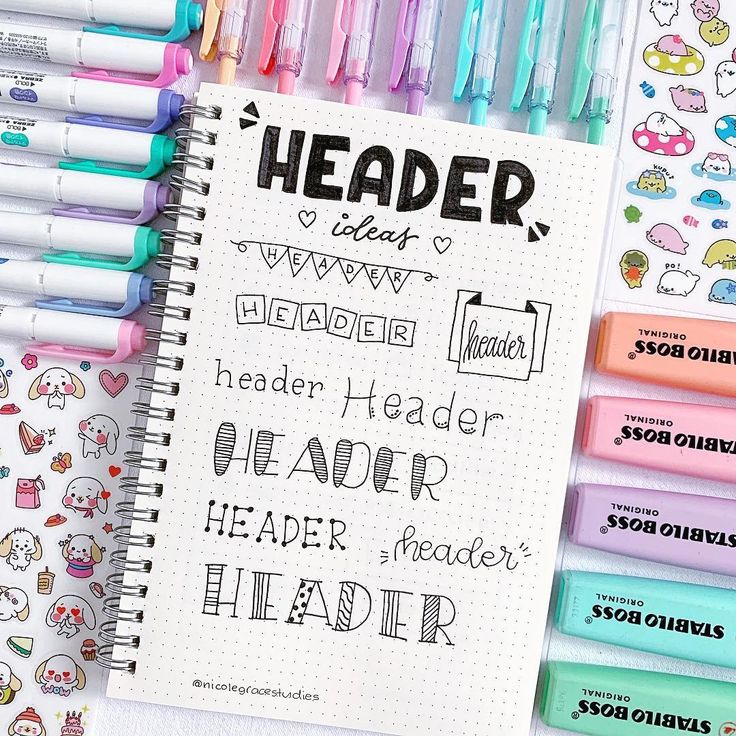 HEADER
ideas
HEADER
HEADER
header
header Header
HEADER
HEADER header
HEADER
@nicolegracestudies
STABILO BOSS
ORIGINAL
STABILO BOSS
ORIGINAL
STABILO BOSS
ORIGINAL
STABILO BOSS
ORIGINAL
STABILO BOSS
ORIGINAL
WOW
ZEBRA